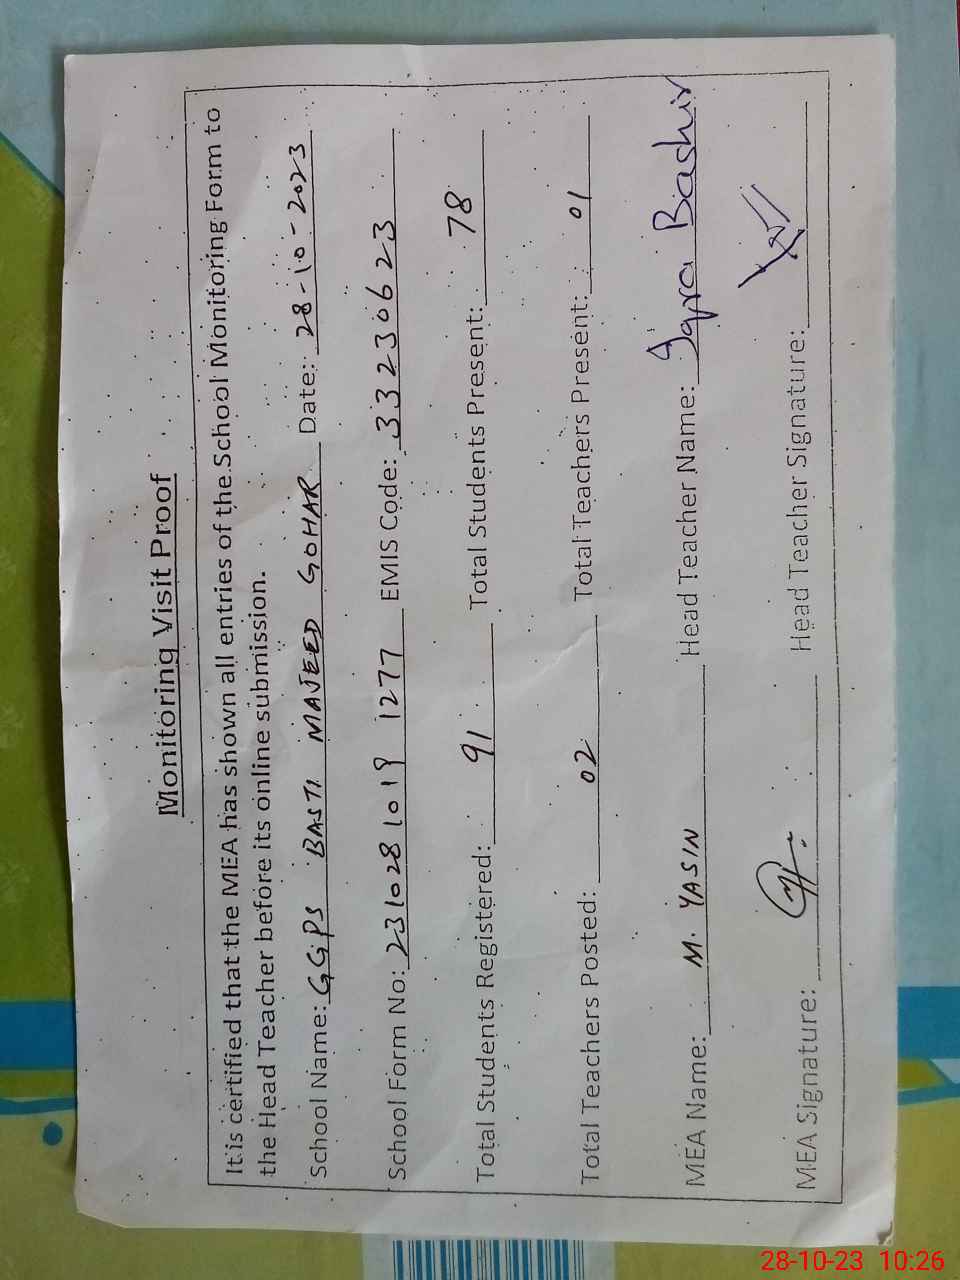 Monitoring Visit Proof
It is certified that the MEA has shown all entries of the School Monitoring Form to
the Head Teacher before its online submission.
School Name: GGPS BASTI MAJEED GOHAR Date: 28-10-2023
School Form No: 2310281019 1277 EMIS Code: 33230623
Total Students Registered: 91 Total Students Present: 78
Total Teachers Posted: 02 Total Teachers Present: 01
MEA Name: M. YASIN Head Teacher Name: Iqra Bashir
MEA Signature: Head Teacher Signature:
28-10-23 10:26